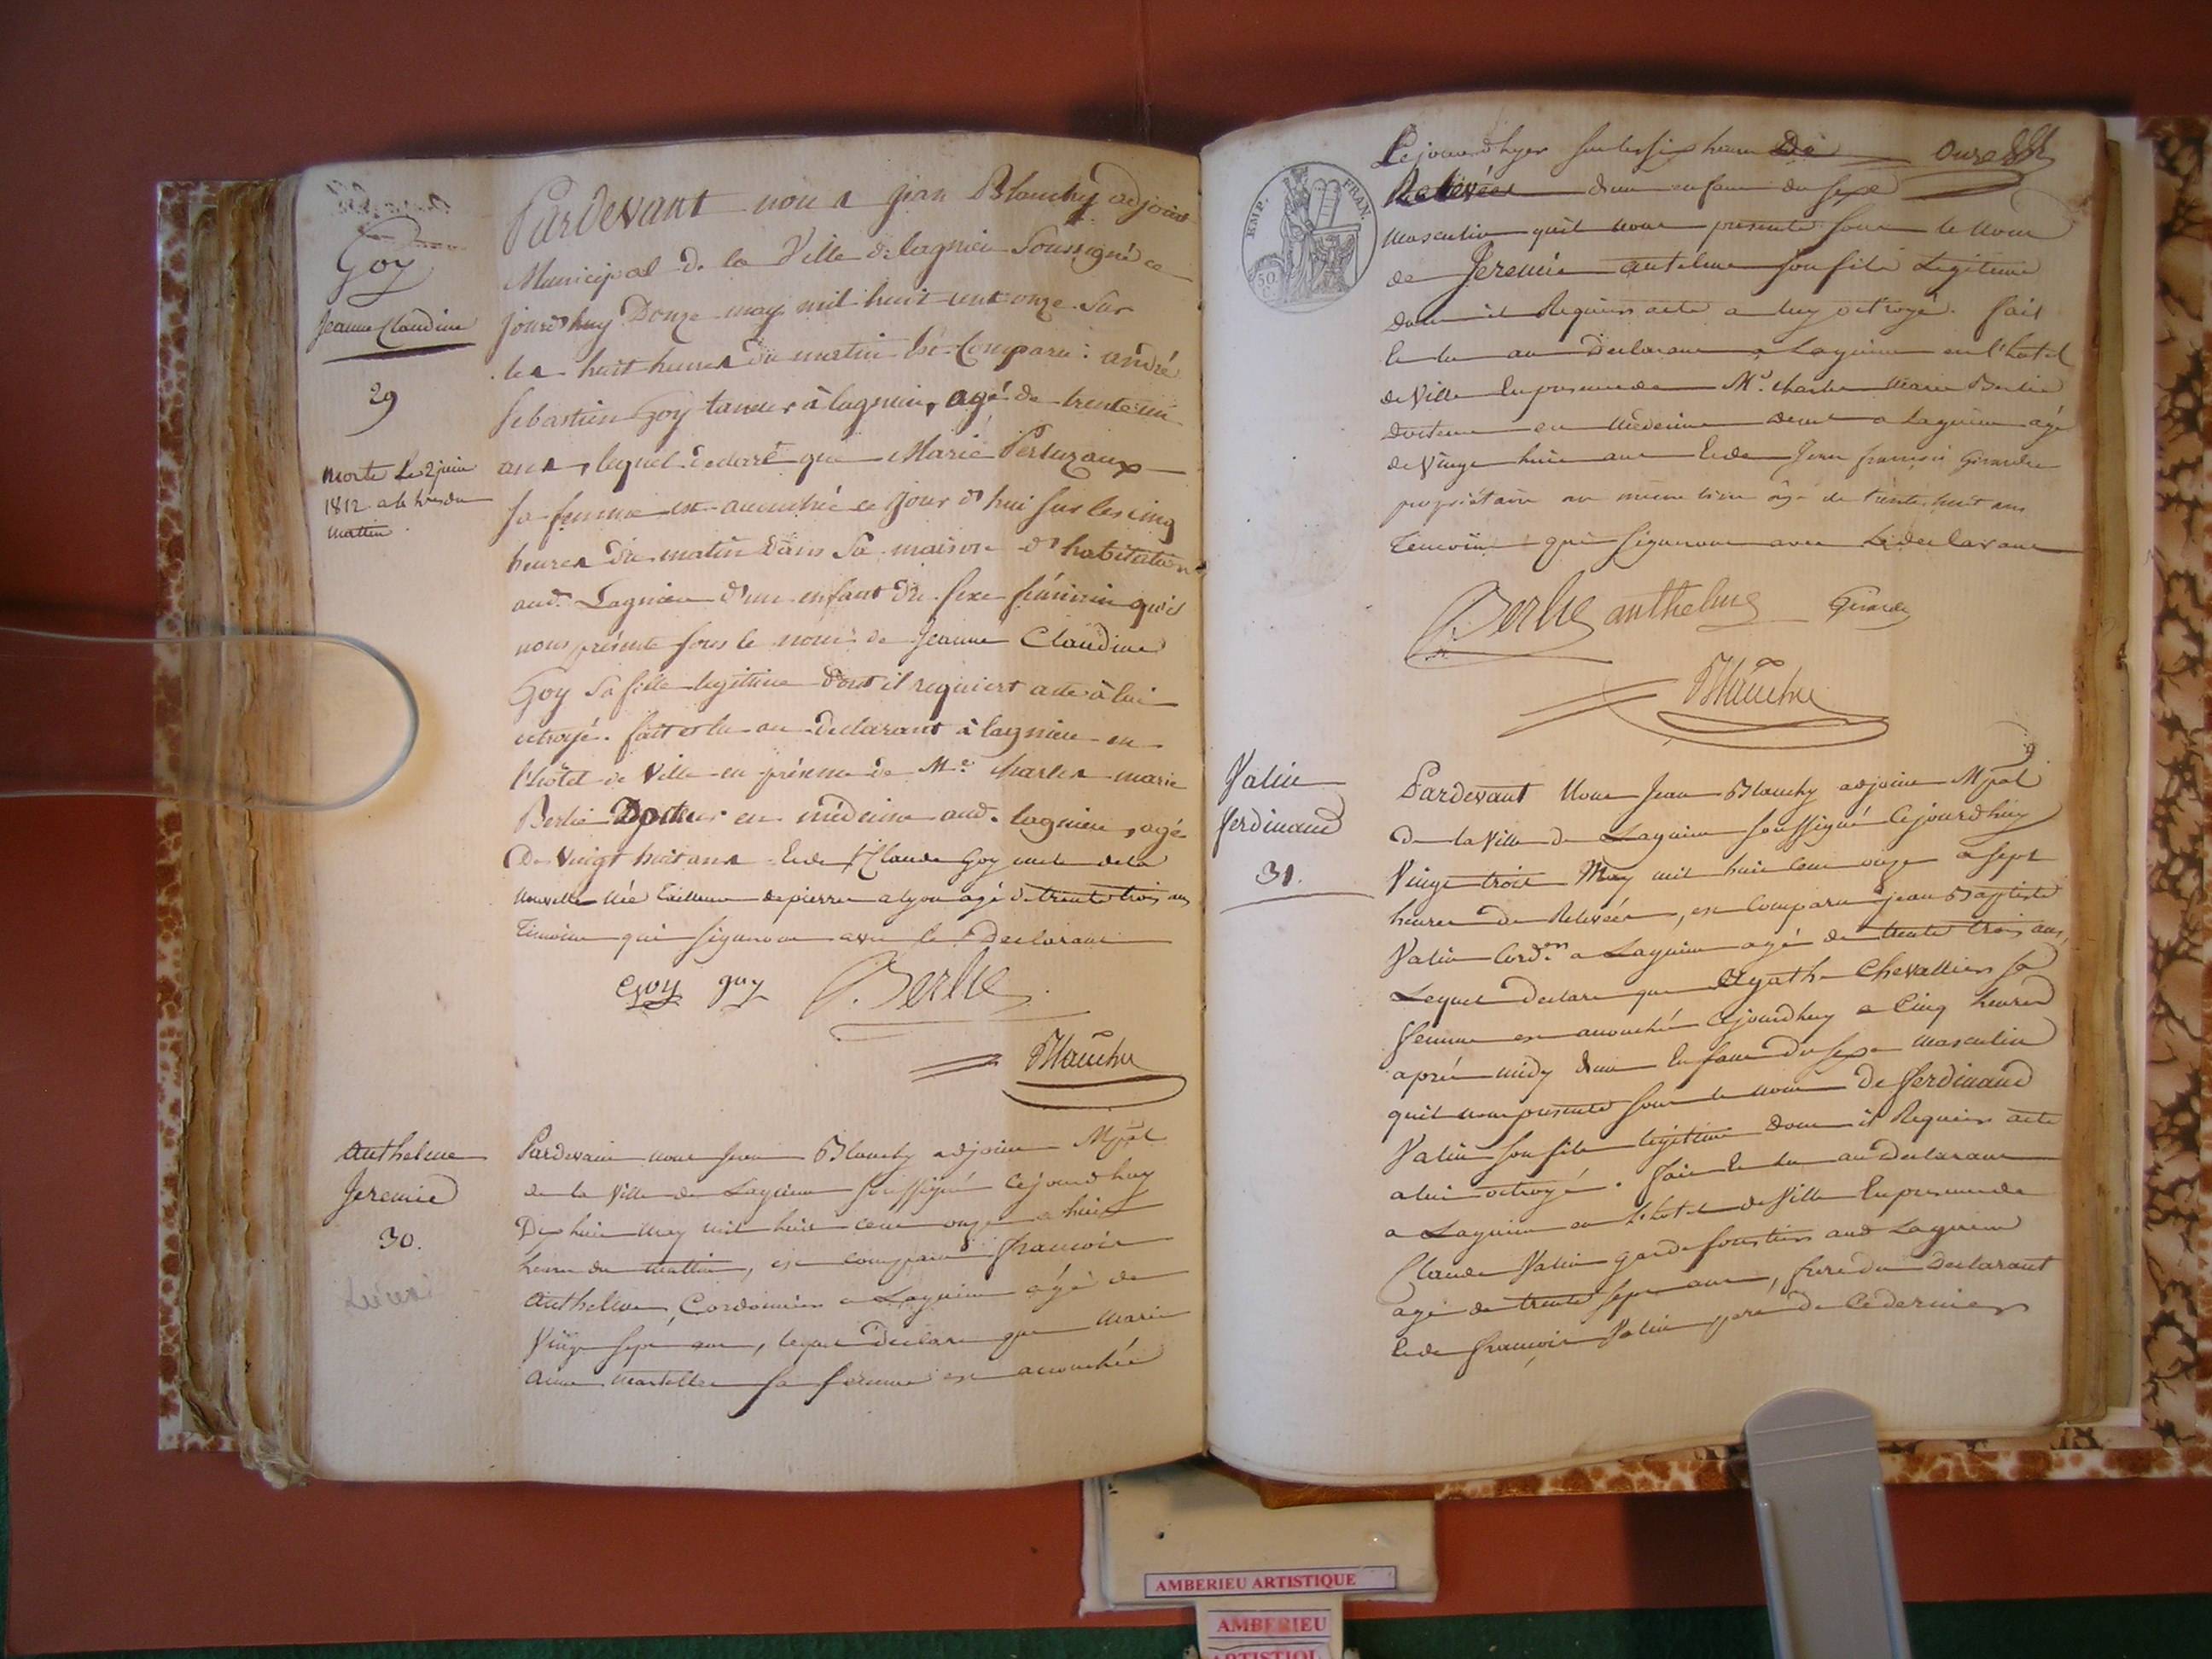 Goy
Jeanne Claudine
29
morte le 2 juin
1812 a 6 hres du
matin
Pardevant nous jean Blanchy adjoint
Municipal de la Ville de lagnieu Soussigné ce
jourdhuy Douze may mil huit cent onze sur
les huit heures du matin est Comparu : andré
Sebastien Goy tanneur à lagnieu, agé de trente un
ans, lequel declare que Marie Perluzaux
sa femme est accouchée ce jour d'hui sur les cinq
heures du matin dans sa maison d'habitation
aud. Lagnieu d'un enfant du sexe féminin qu'il
nous présente sous le nom de Jeanne Claudine
Goy sa fille legitime dont il requiert acte à lui
octroyé. fait et lu au declarant à lagnieu en
l'hôtel de Ville en présence de Mr. charles marie
Berlie Docteur en médecine aud. lagnieu, agé
De Vingt huit ans et de Claude Goy oncle de la
nouvelle née tailleur de pierre a lyon agé de trente trois ans
Temoins qui signeront avec le Declarant
Goy goy Berlie
Blanchy
Anthelme
Jeremie
30.
Pardevant nous Jean Blanchy adjoint Mpal
de la Ville de Lagnieu soussigné Cejourdhuy
Dix huit may mil huit cent onze a huit
heures du mattin, est comparu francois
Anthelme, Cordonnier a Lagnieu agé de
Vingt sept ans, lequel Declare que Marie
Anne Martellet sa femme est accouchée
Lejour d'hyer sur les six heures De onze
Relevées d'un enfant du sexe
masculin quil nous presente sous le nom
de Jeremie antelme son fils Legitime
dont il Requiers acte a luy octroyé. fait
et lu au Declarant a Lagnieu en l'hotel
de Ville En presence de Mr. charles Marie Berlie
Docteur en Medecine demt a Lagnieu agé
de Vingt huit ans et de Jean francois Girardin
propriétaire au meme lieu âgé de trente huit ans
Temoins qui signeront avec Le declarant
Berlie anthelme
Blanchy
EMP. FRAN.
50 C
Valin
Ferdinand
31.
Pardevant Nous Jean Blanchy adjoint Mpal
De la Ville de Lagnieu soussigné Cejourdhuy
Vingt trois May mil huit cent onze a sept
heures de Relevées, est Comparu jean Baptiste
Valin Cordier a Lagnieu agé de trente trois ans,
Lequel declare que Agathe Chevallier sa
femme est accouchée Cejourdhuy a Cinq heures
aprés midy d'un Enfant Du sexe masculin
quil nous presente sous le nom De ferdinand
Valin son fils legitime dont il Requiers acte
a lui octroyé. Fait Et lu au Declarant
a Lagnieu en L'hotel de Ville En presence de
Claude Valin garde forestier aud Lagnieu
agé de trente sept ans, frere du Declarant
Et de francois Valin pere De Ce dernier
AMBERIEU ARTISTIQUE
AMBERIEU